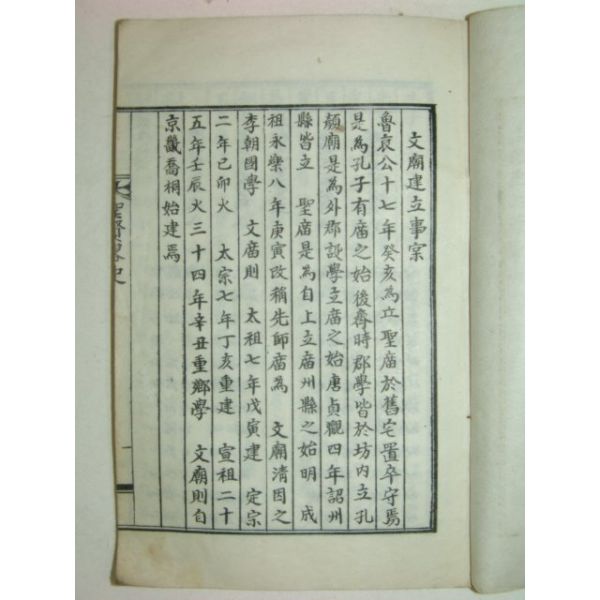 文廟建立事案
魯哀公十七年癸亥為立 聖廟於舊宅置卒守焉
是為孔子有廟之始後齊時郡學皆於坊內立孔
顏廟是為外郡設學立廟之始唐貞觀四年詔州
縣皆立 聖廟是為自上立廟州縣之始明 成
祖永樂八年庚寅改稱先師廟為 文廟淸因之
李朝國學 文廟則 太祖七年戊寅建 定宗
二年己卯火 太宗七年丁亥重建 宣祖二十
五年壬辰火三十四年辛丑重鄉學 文廟則自
京畿喬桐始建焉
聖賢畧史
一